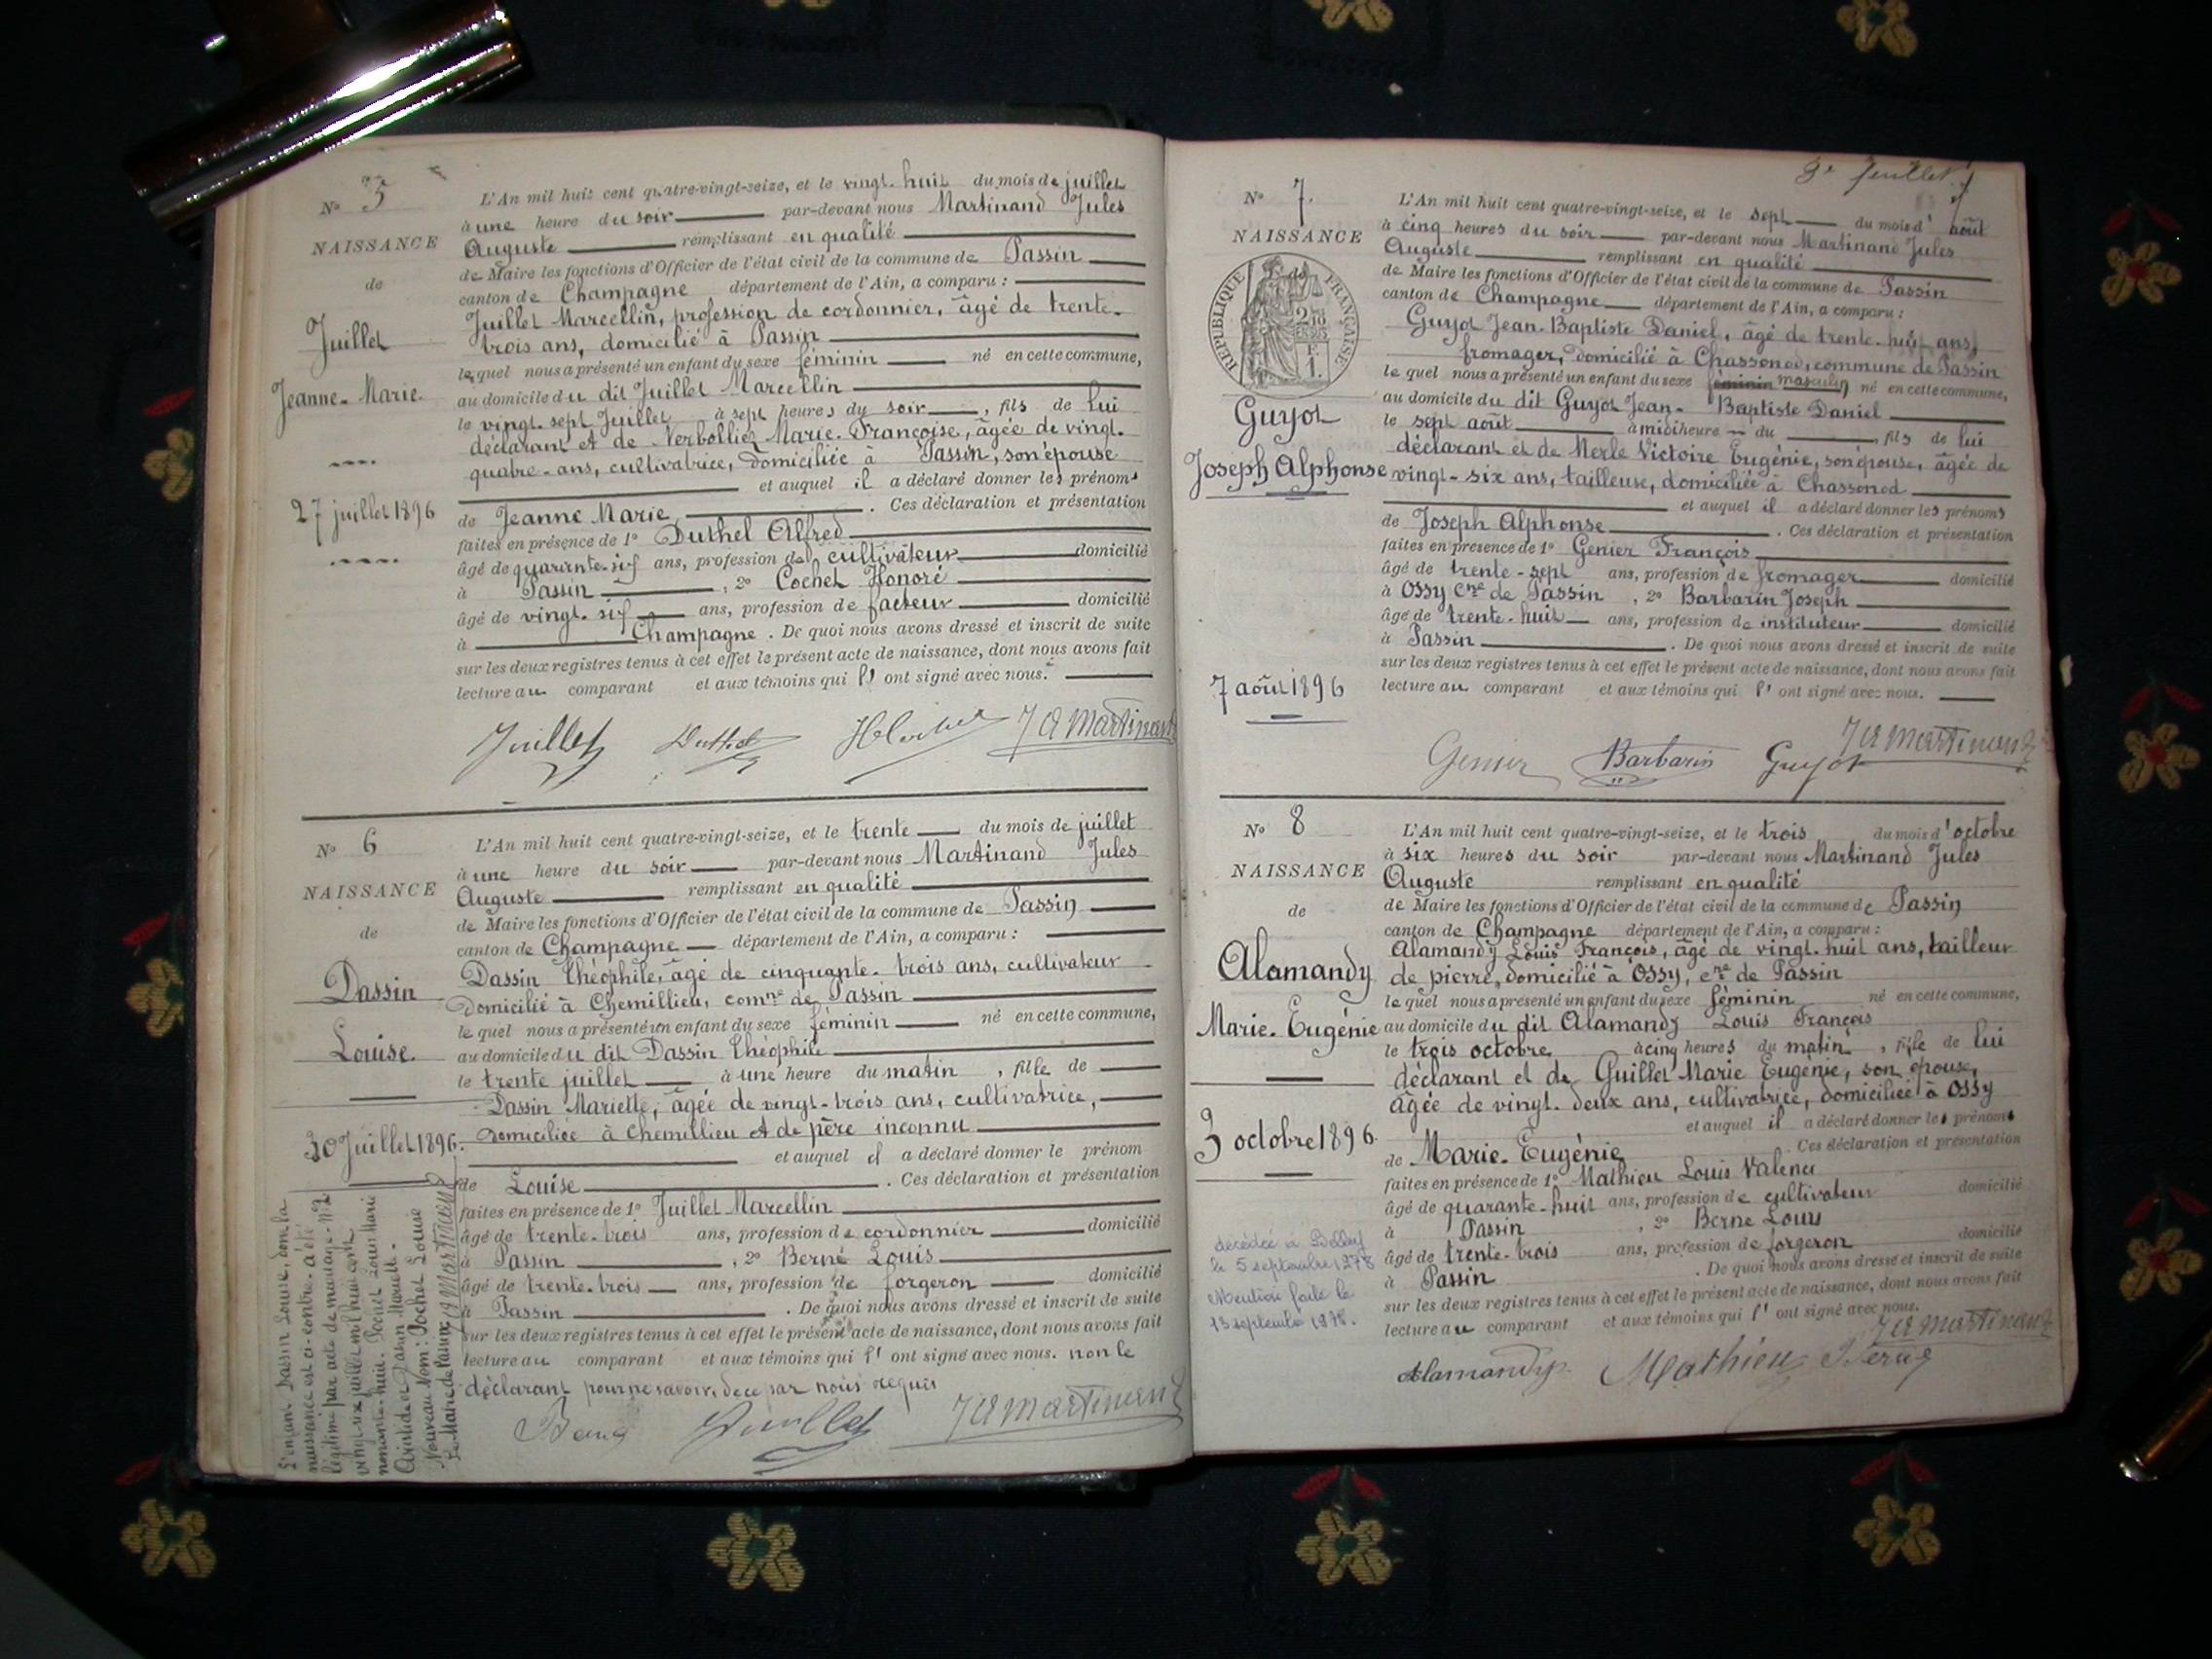 No 5
NAISSANCE
de
Juillet
Jeanne-Marie.
27 juillet 1896
L'An mil huit cent quatre-vingt-seize, et le vingt-huit du mois de juillet
à une heure du soir par-devant nous Martinand Jules
Auguste remplissant en qualité
de Maire les fonctions d'Officier de l'état civil de la commune de Passin
canton de Champagne département de l'Ain, a comparu :
Juillet Marcellin, profession de cordonnier, âgé de trente-
trois ans, domicilié à Passin
lequel nous a présenté un enfant du sexe féminin né en cette commune,
au domicile du dit Juillet Marcellin
le vingt-sept Juillet à sept heures du soir, fils de lui
déclarant et de Marie-Françoise, âgée de vingt-
quatre-ans, cultivatrice, domiciliée à Passin, son épouse
et auquel il a déclaré donner les prénoms
de Jeanne Marie. Ces déclaration et présentation
faites en présence de 1º Duthel Alfred
âgé de quarante-six ans, profession de cultivateur domicilié
à Passin, 2º Cochet Honoré
âgé de vingt-six ans, profession de facteur domicilié
à Champagne. De quoi nous avons dressé et inscrit de suite
sur les deux registres tenus à cet effet le présent acte de naissance, dont nous avons fait
lecture au comparant et aux témoins qui l' ont signé avec nous.
Juillet Duthel JA Martinand
No 6
NAISSANCE
de
Dassin
Louise.
30 Juillet 1896.
L'An mil huit cent quatre-vingt-seize, et le trente du mois de juillet
à une heure du soir par-devant nous Martinand Jules
Auguste remplissant en qualité
de Maire les fonctions d'Officier de l'état civil de la commune de Passin
canton de Champagne département de l'Ain, a comparu :
Dassin Théophile, âgé de cinquante-trois ans, cultivateur
domicilié à Chemillieu, comne de Passin
lequel nous a présenté un enfant du sexe féminin né en cette commune,
au domicile du dit Dassin Théophile
le trente juillet à une heure du matin, fille de
Dassin Mariette, âgée de vingt-trois ans, cultivatrice,
domiciliée à Chemillieu et de père inconnu
et auquel il a déclaré donner le prénom
de Louise. Ces déclaration et présentation
faites en présence de 1º Juillet Marcellin
âgé de trente-trois ans, profession de cordonnier domicilié
à Passin, 2º Berne Louis
âgé de trente-trois ans, profession de forgeron domicilié
à Passin. De quoi nous avons dressé et inscrit de suite
sur les deux registres tenus à cet effet le présent acte de naissance, dont nous avons fait
lecture au comparant et aux témoins qui l' ont signé avec nous. non le
déclarant pour ne savoir, de ce par nous requis
Berne Juillet JA Martinand
L'enfant Dassin Louise, dont la
naissance est ci-contre, a été
légitimé par acte de mariage - Nº 2
vingt-six juillet mil huit cent
nonante-huit. Pochet Louis Marie
Aristide et Dassin Mariette.
Nouveau Nom : Pochet Louise
Le Maire de Passin, JA Martinand
3e feuillet
No 7.
NAISSANCE
de
RÉPUBLIQUE FRANÇAISE
2/10 EN SUS
F. 1.
Guyot
Joseph Alphonse
7 août 1896
L'An mil huit cent quatre-vingt-seize, et le sept du mois d' août
à cinq heures du soir par-devant nous Martinand Jules
Auguste remplissant en qualité
de Maire les fonctions d'Officier de l'état civil de la commune de Passin
canton de Champagne département de l'Ain, a comparu :
Guyot Jean-Baptiste Daniel, âgé de trente-huit ans,
fromager, domicilié à Chassonod, commune de Passin
lequel nous a présenté un enfant du sexe féminin masculin né en cette commune,
au domicile du dit Guyot Jean-Baptiste Daniel
le sept août à midi heure du, fils de lui
déclarant et de Merle Victoire Eugénie, son épouse, âgée de
vingt-six ans, tailleuse, domiciliée à Chassonod
et auquel il a déclaré donner les prénoms
de Joseph Alphonse. Ces déclaration et présentation
faites en présence de 1º Genier François
âgé de trente-sept ans, profession de fromager domicilié
à Ossy Cne de Passin, 2º Barbarin Joseph
âgé de trente-huit ans, profession de instituteur domicilié
à Passin. De quoi nous avons dressé et inscrit de suite
sur les deux registres tenus à cet effet le présent acte de naissance, dont nous avons fait
lecture au comparant et aux témoins qui l' ont signé avec nous.
Genier Barbarin Guyot JA Martinand
No 8
NAISSANCE
de
Alamandy
Marie-Eugénie
3 octobre 1896.
décédée à Belley
le 5 septembre 1978
Mention faite le
13 septembre 1978.
L'An mil huit cent quatre-vingt-seize, et le trois du mois d'octobre
à six heures du soir par-devant nous Martinand Jules
Auguste remplissant en qualité
de Maire les fonctions d'Officier de l'état civil de la commune de Passin
canton de Champagne département de l'Ain, a comparu :
Alamandy Louis François, âgé de vingt-huit ans, tailleur
de pierre, domicilié à Ossy, cne de Passin
lequel nous a présenté un enfant du sexe féminin né en cette commune,
au domicile du dit Alamandy Louis François
le trois octobre à cinq heures du matin, fille de lui
déclarant et de Guillet Marie Eugénie, son épouse,
âgée de vingt-deux ans, cultivatrice, domiciliée à Ossy
et auquel il a déclaré donner les prénoms
de Marie-Eugénie. Ces déclaration et présentation
faites en présence de 1º Mathieu Louis
âgé de quarante-huit ans, profession de cultivateur domicilié
à Passin, 2º Berne Louis
âgé de trente-trois ans, profession de forgeron domicilié
à Passin. De quoi nous avons dressé et inscrit de suite
sur les deux registres tenus à cet effet le présent acte de naissance, dont nous avons fait
lecture au comparant et aux témoins qui l' ont signé avec nous.
Alamandy Mathieu Berne JA Martinand